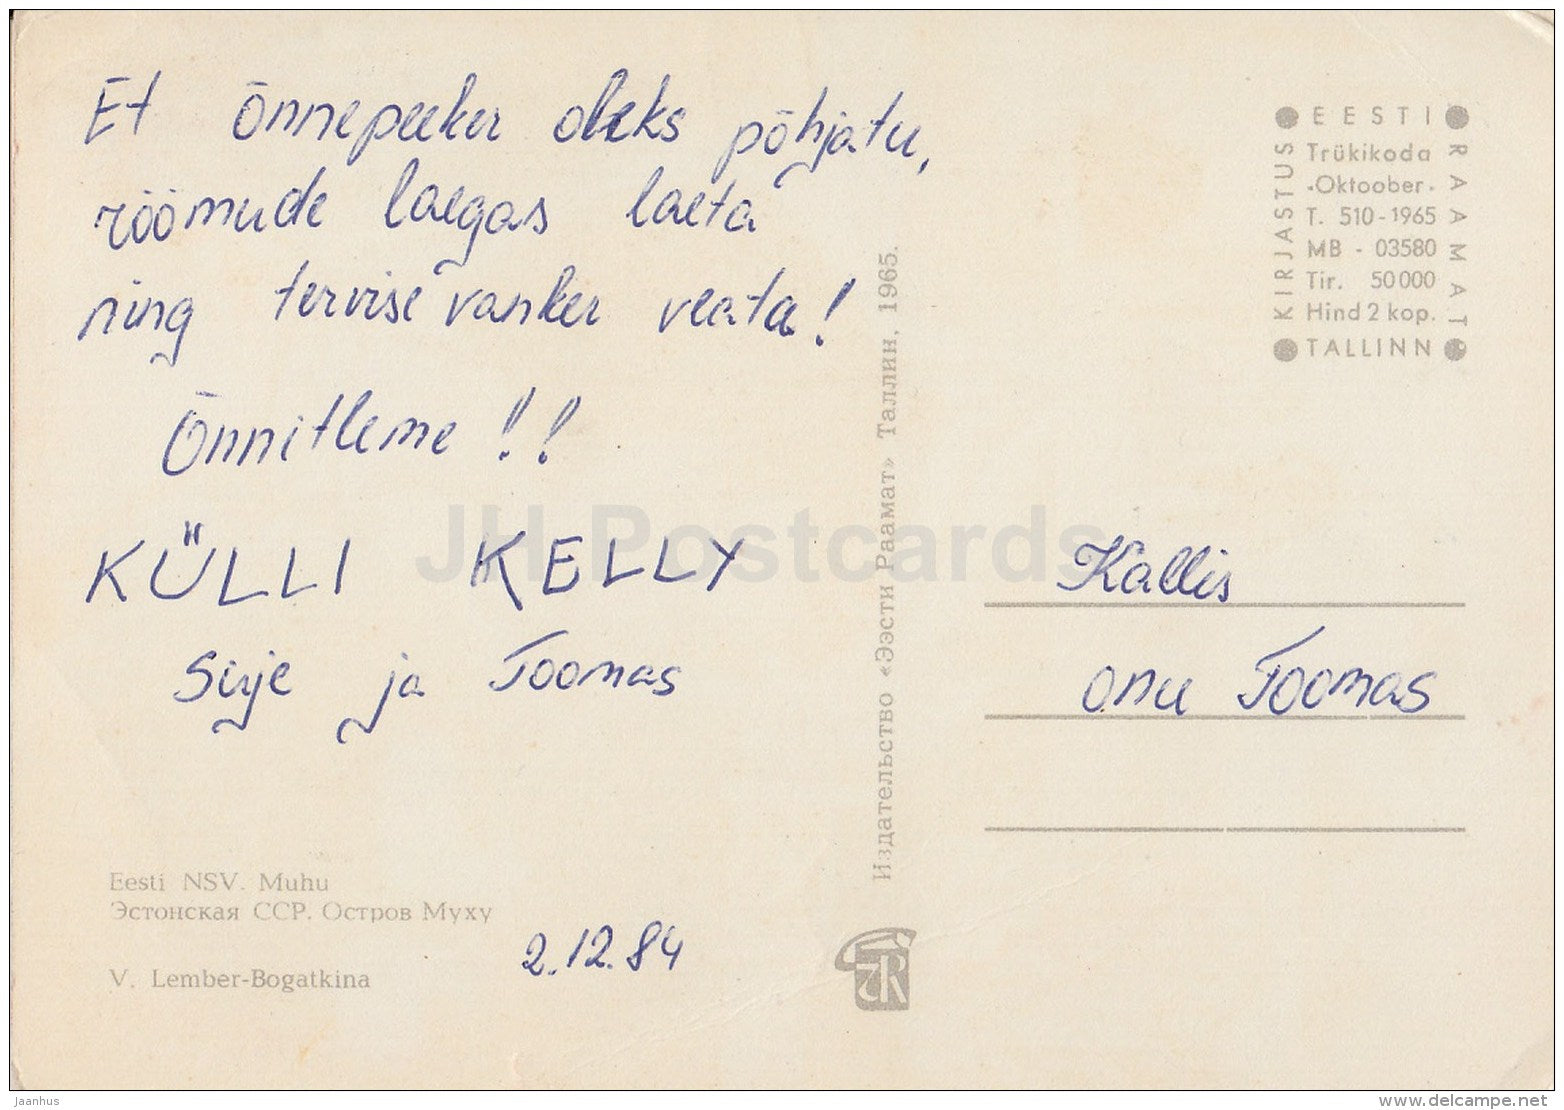 Et õnnepeeker oleks põhjatu,
rõõmude laegas laeta
ning tervise vanker veata!
Õnnitleme!!
KÜLLI KELLY
Sirje ja Toomas
Eesti NSV. Muhu
Эстонская ССР. Остров Муху
V. Lember-Bogatkina
2.12.84
Издательство «Ээсти Раамат» Таллин, 1965.
EESTI
RAAMAT
KIRJASTUS
Trükikoda
«Oktoober»
T. 510-1965
MB - 03580
Tir. 50000
Hind 2 kop.
TALLINN
Kallis
onu Toomas
ER
JH Postcards
Jaanhus
delcampe.net